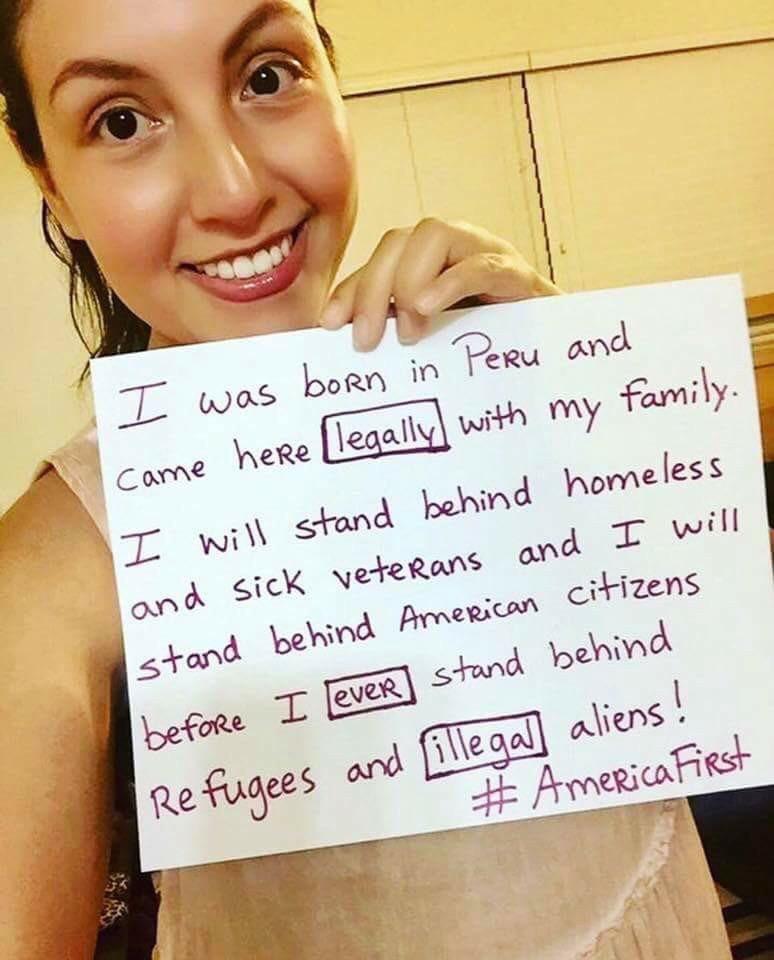 I was born in Peru and
came here legally with my family.
I will stand behind homeless
and sick veterans and I will
stand behind American citizens
before I ever stand behind
Refugees and illegal aliens!
#AmericaFirst